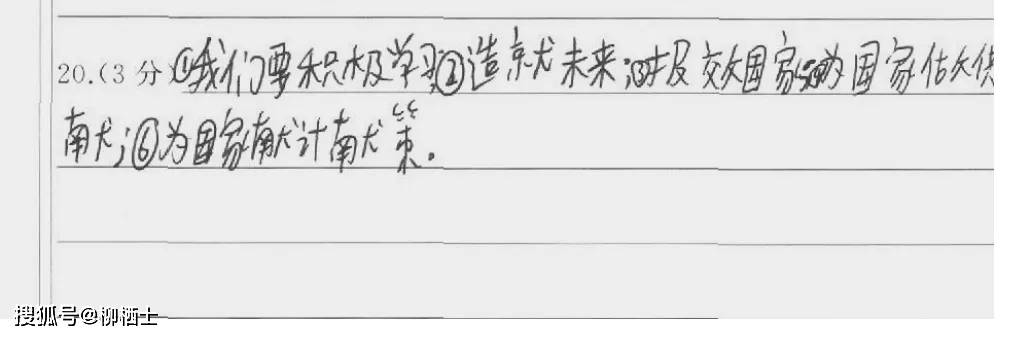 20.(3分)①我们要积极学习②造就未来;③报效国家④为国家做
献;⑥为国家献计献策.
搜狐号@柳栖士